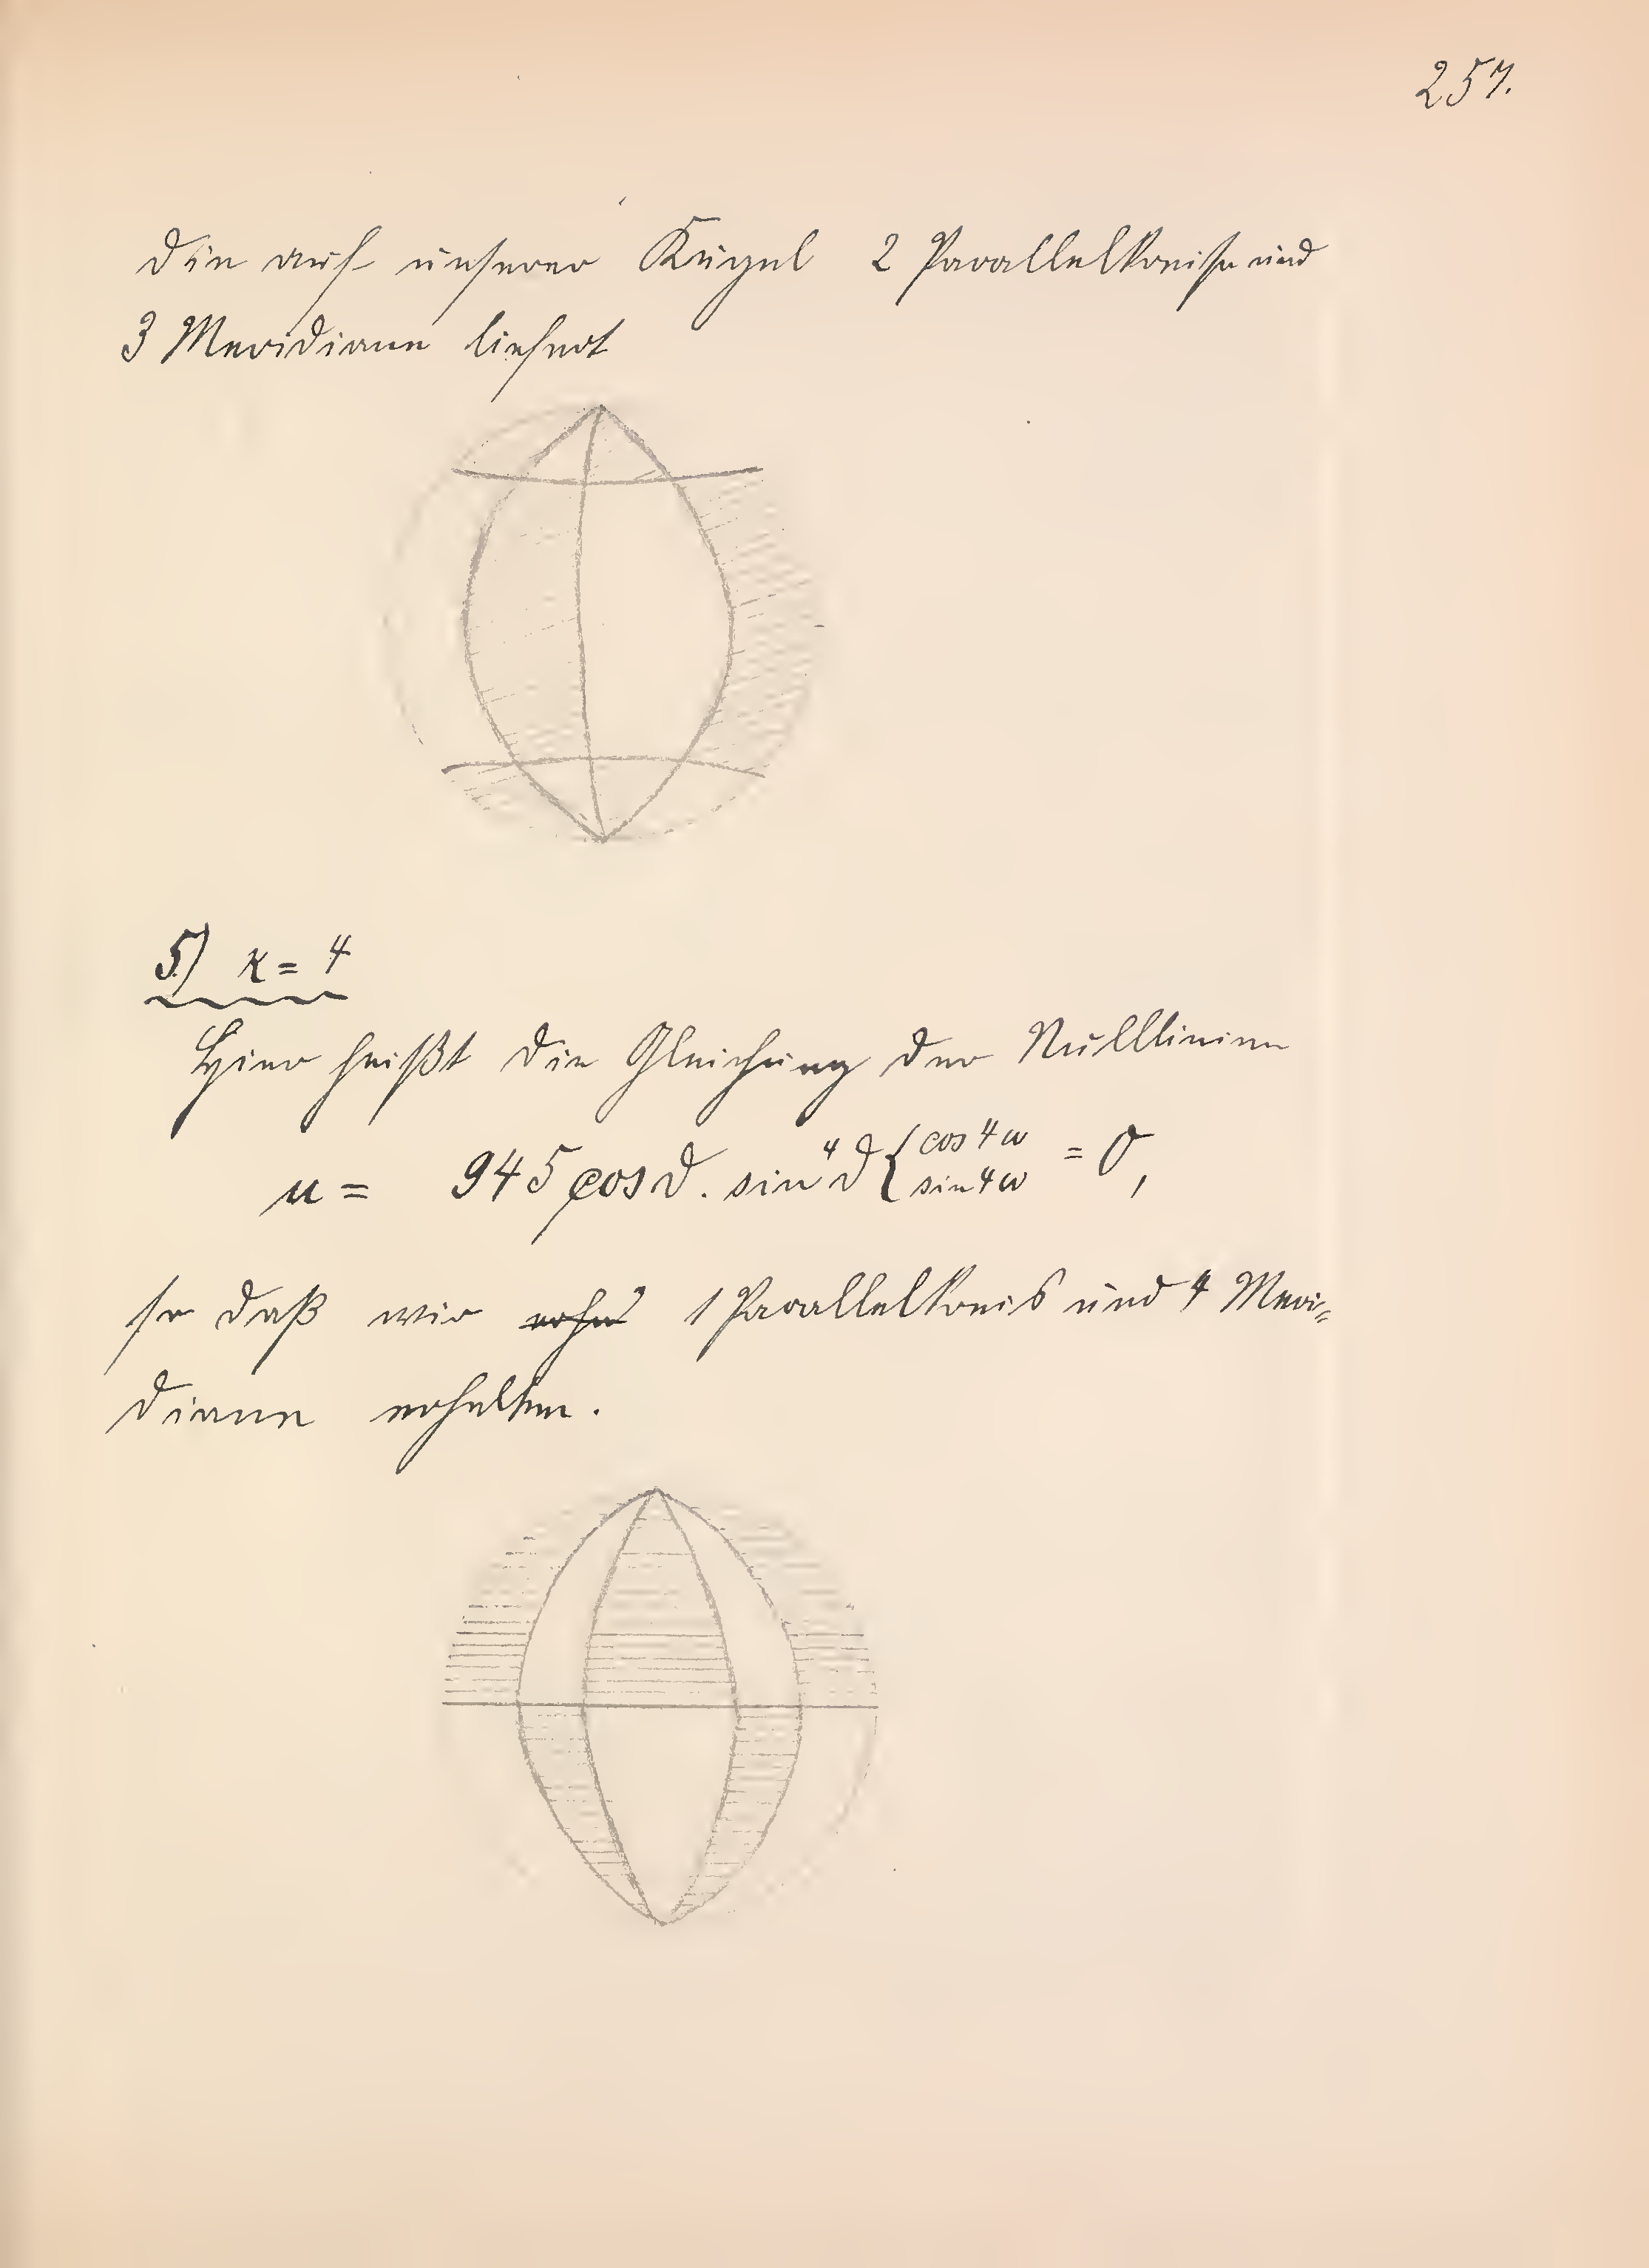 257.
die auf unserer Kugel 2 Parallelkreise und
3 Meridiane liefert
5.) κ = 4
Hier heißt die Gleichung der Nulllinien
u = 945 cos ϑ . sin⁴ ϑ { cos 4 ω sin 4 ω = 0,
so daß wir 1 Parallelkreis und 4 Meri-
diane erhalten.